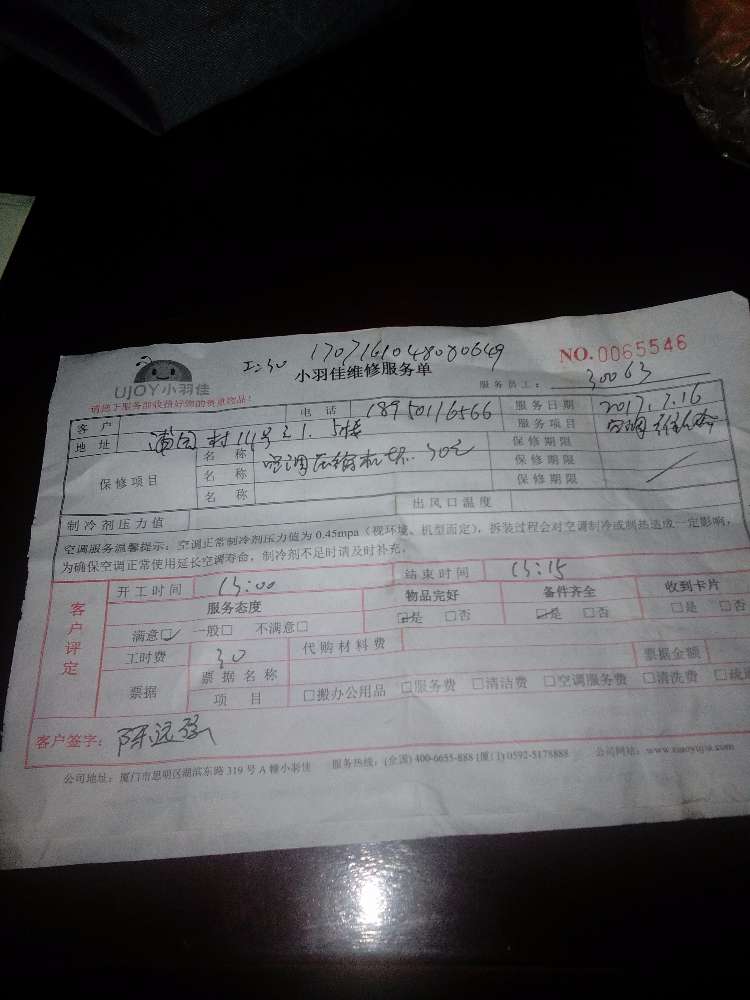 1707161048080649
NO.0065546
UJOY小羽佳 小羽佳维修服务单 服务员工: 30063
请您于服务前收拾好您的贵重物品!
客户 电话 18950116566 服务日期 2017.7.16
地址 村 服务项目 空调
保修项目 名称 空调压缩机坏.30元 保修期限
名称 保修期限
名称 保修期限
制冷剂压力值 出风口温度
空调服务温馨提示:空调正常制冷剂压力值为0.45mpa(视环境、机型而定),拆装过程会对空调制冷或制热造成一定影响,
为确保空调正常使用延长空调寿命,制冷剂不足时请及时补充。
客户评定 开工时间 15:00 结束时间 15:15
服务态度 物品完好 备件齐全 收到卡片
满意□ 一般□ 不满意□ □是 □否 □是 □否 □是 □否
工时费 30 代购材料费
票据 票据名称 票据金额
项目 □搬办公用品 □服务费 □清洁费 □空调服务费 □清洗费
客户签字:
公司地址:厦门市思明区湖滨东路319号A幢小羽佳 服务热线:(全国)400-6655-888(厦门)0592-5178888 公司网站:www.xiaoyujia.com